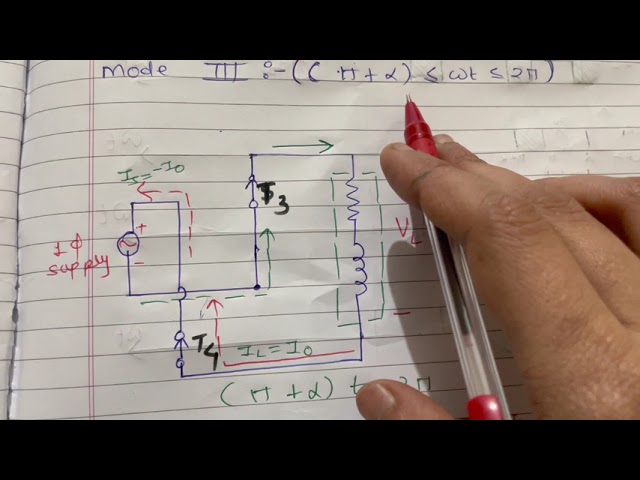 Mode III :- ( (π + α) ≤ ωt ≤ 2π )
Is = -Io
T3
+
1 ϕ
supply
-
VL
-
T4
IL = Io
(π + α) to 2π